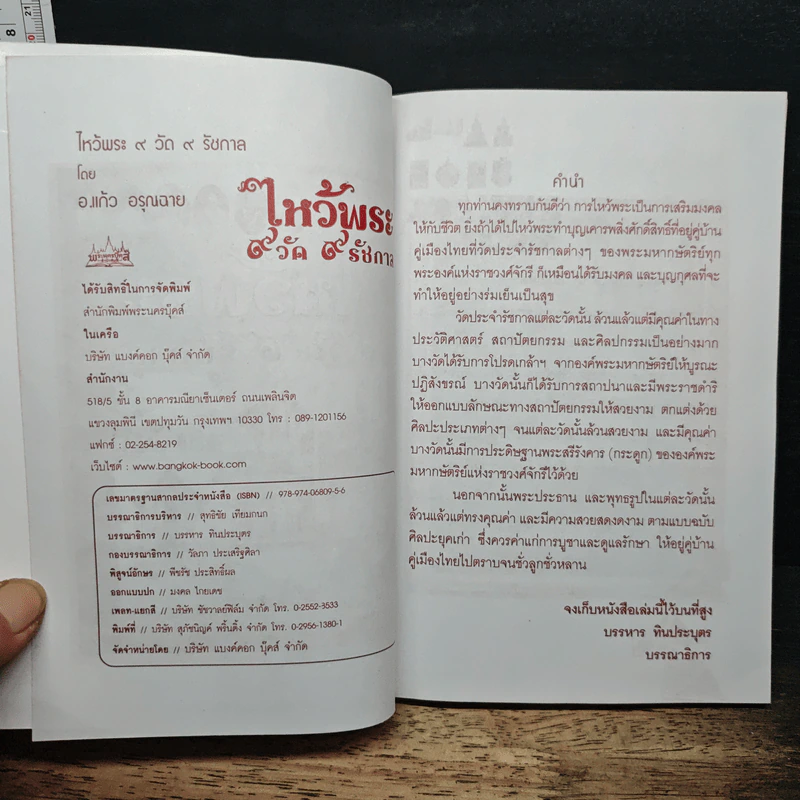 8
21
ไหว้พระ ๙ วัด ๙ รัชกาล
โดย
อ.แก้ว อรุณฉาย
ไหว้พระ
๙ วัด ๙ รัชกาล
ได้รับสิทธิ์ในการจัดพิมพ์
สำนักพิมพ์พระนครบุ๊คส์
ในเครือ
บริษัท แบงค์คอก บุ๊คส์ จำกัด
สำนักงาน
518/5 ชั้น 8 อาคารมณียาเซ็นเตอร์ ถนนเพลินจิต
แขวงลุมพินี เขตปทุมวัน กรุงเทพฯ 10330 โทร : 089-1201156
แฟกซ์ : 02-254-8219
เว็บไซต์ : www.bangkok-book.com
เลขมาตรฐานสากลประจำหนังสือ (ISBN) // 978-974-06809-5-6
บรรณาธิการบริหาร // สุทธิชัย เทียมกนก
บรรณาธิการ // บรรหาร ทินประบุตร
กองบรรณาธิการ // วัลภา ประเสริฐศิลา
พิสูจน์อักษร // พีชรัช ประสิทธิ์ผล
ออกแบบปก // มงคล ไกยเดช
เพลท-แยกสี // บริษัท ชัชวาลย์ฟิล์ม จำกัด โทร. 0-2552-3533
พิมพ์ที่ // บริษัท สุภัชนิญค์ พริ้นติ้ง จำกัด โทร. 0-2956-1380-1
จัดจำหน่ายโดย // บริษัท แบงค์คอก บุ๊คส์ จำกัด
คำนำ
ทุกท่านคงทราบกันดีว่า การไหว้พระเป็นการเสริมมงคล
ให้กับชีวิต ยิ่งถ้าได้ไปไหว้พระทำบุญเคารพสิ่งศักดิ์สิทธิ์ที่อยู่คู่บ้าน
คู่เมืองไทยที่วัดประจำรัชกาลต่างๆ ของพระมหากษัตริย์ทุก
พระองค์แห่งราชวงศ์จักรี ก็เหมือนได้รับมงคล และบุญกุศลที่จะ
ทำให้อยู่อย่างร่มเย็นเป็นสุข
วัดประจำรัชกาลแต่ละวัดนั้น ล้วนแล้วแต่มีคุณค่าในทาง
ประวัติศาสตร์ สถาปัตยกรรม และศิลปกรรมเป็นอย่างมาก
บางวัดได้รับการโปรดเกล้าฯ จากองค์พระมหากษัตริย์ให้บูรณะ
ปฏิสังขรณ์ บางวัดนั้นก็ได้รับการสถาปนาและมีพระราชดำริ
ให้ออกแบบลักษณะทางสถาปัตยกรรมให้สวยงาม ตกแต่งด้วย
ศิลปะประเภทต่างๆ จนแต่ละวัดนั้นล้วนสวยงาม และมีคุณค่า
บางวัดนั้นมีการประดิษฐานพระสรีรังคาร (กระดูก) ขององค์พระ
มหากษัตริย์แห่งราชวงศ์จักรีไว้ด้วย
นอกจากนั้นพระประธาน และพุทธรูปในแต่ละวัดนั้น
ล้วนแล้วแต่ทรงคุณค่า และมีความสวยสดงดงาม ตามแบบฉบับ
ศิลปะยุคเก่า ซึ่งควรค่าแก่การบูชาและดูแลรักษา ให้อยู่คู่บ้าน
คู่เมืองไทยไปตราบจนชั่วลูกชั่วหลาน
จงเก็บหนังสือเล่มนี้ไว้บนที่สูง
บรรหาร ทินประบุตร
บรรณาธิการ